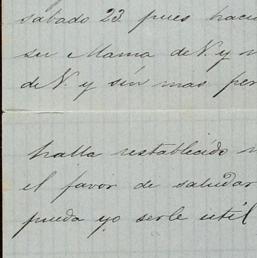 sabado 23 pues haci
su Mama de V. y
de V. y sin mas per
halla restablecido
el favor de saludar
pueda yo serle util